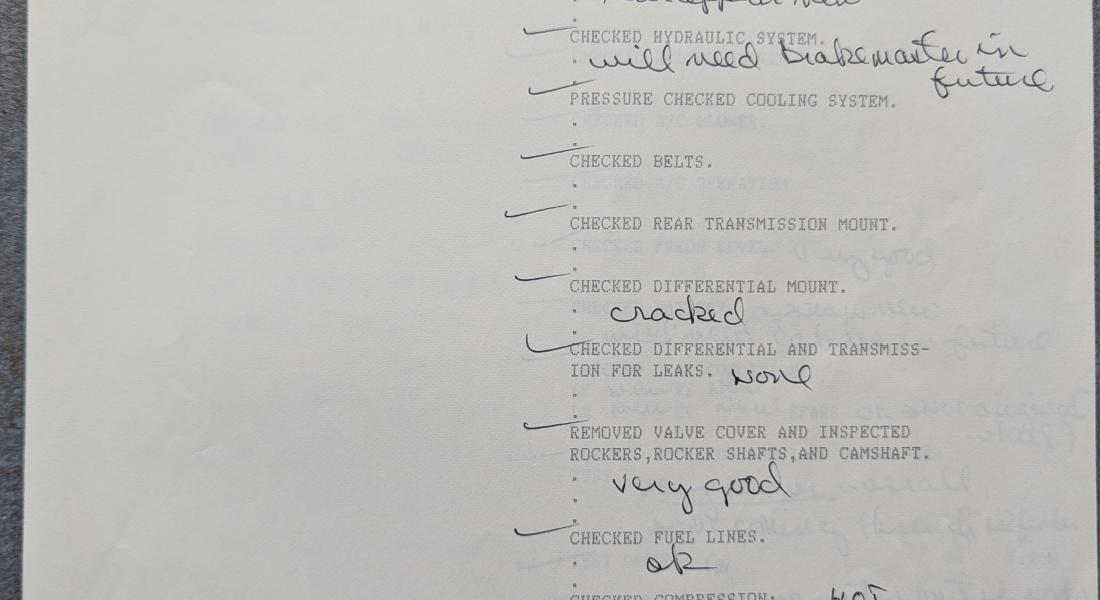 CHECKED HYDRAULIC SYSTEM.
will need brakemaster in
future
PRESSURE CHECKED COOLING SYSTEM.
CHECKED BELTS.
CHECKED REAR TRANSMISSION MOUNT.
CHECKED DIFFERENTIAL MOUNT.
cracked
CHECKED DIFFERENTIAL AND TRANSMISS-
ION FOR LEAKS. none
REMOVED VALVE COVER AND INSPECTED
ROCKERS,ROCKER SHAFTS,AND CAMSHAFT.
very good
CHECKED FUEL LINES.
ok
CHECKED COMPRESSION: HOT